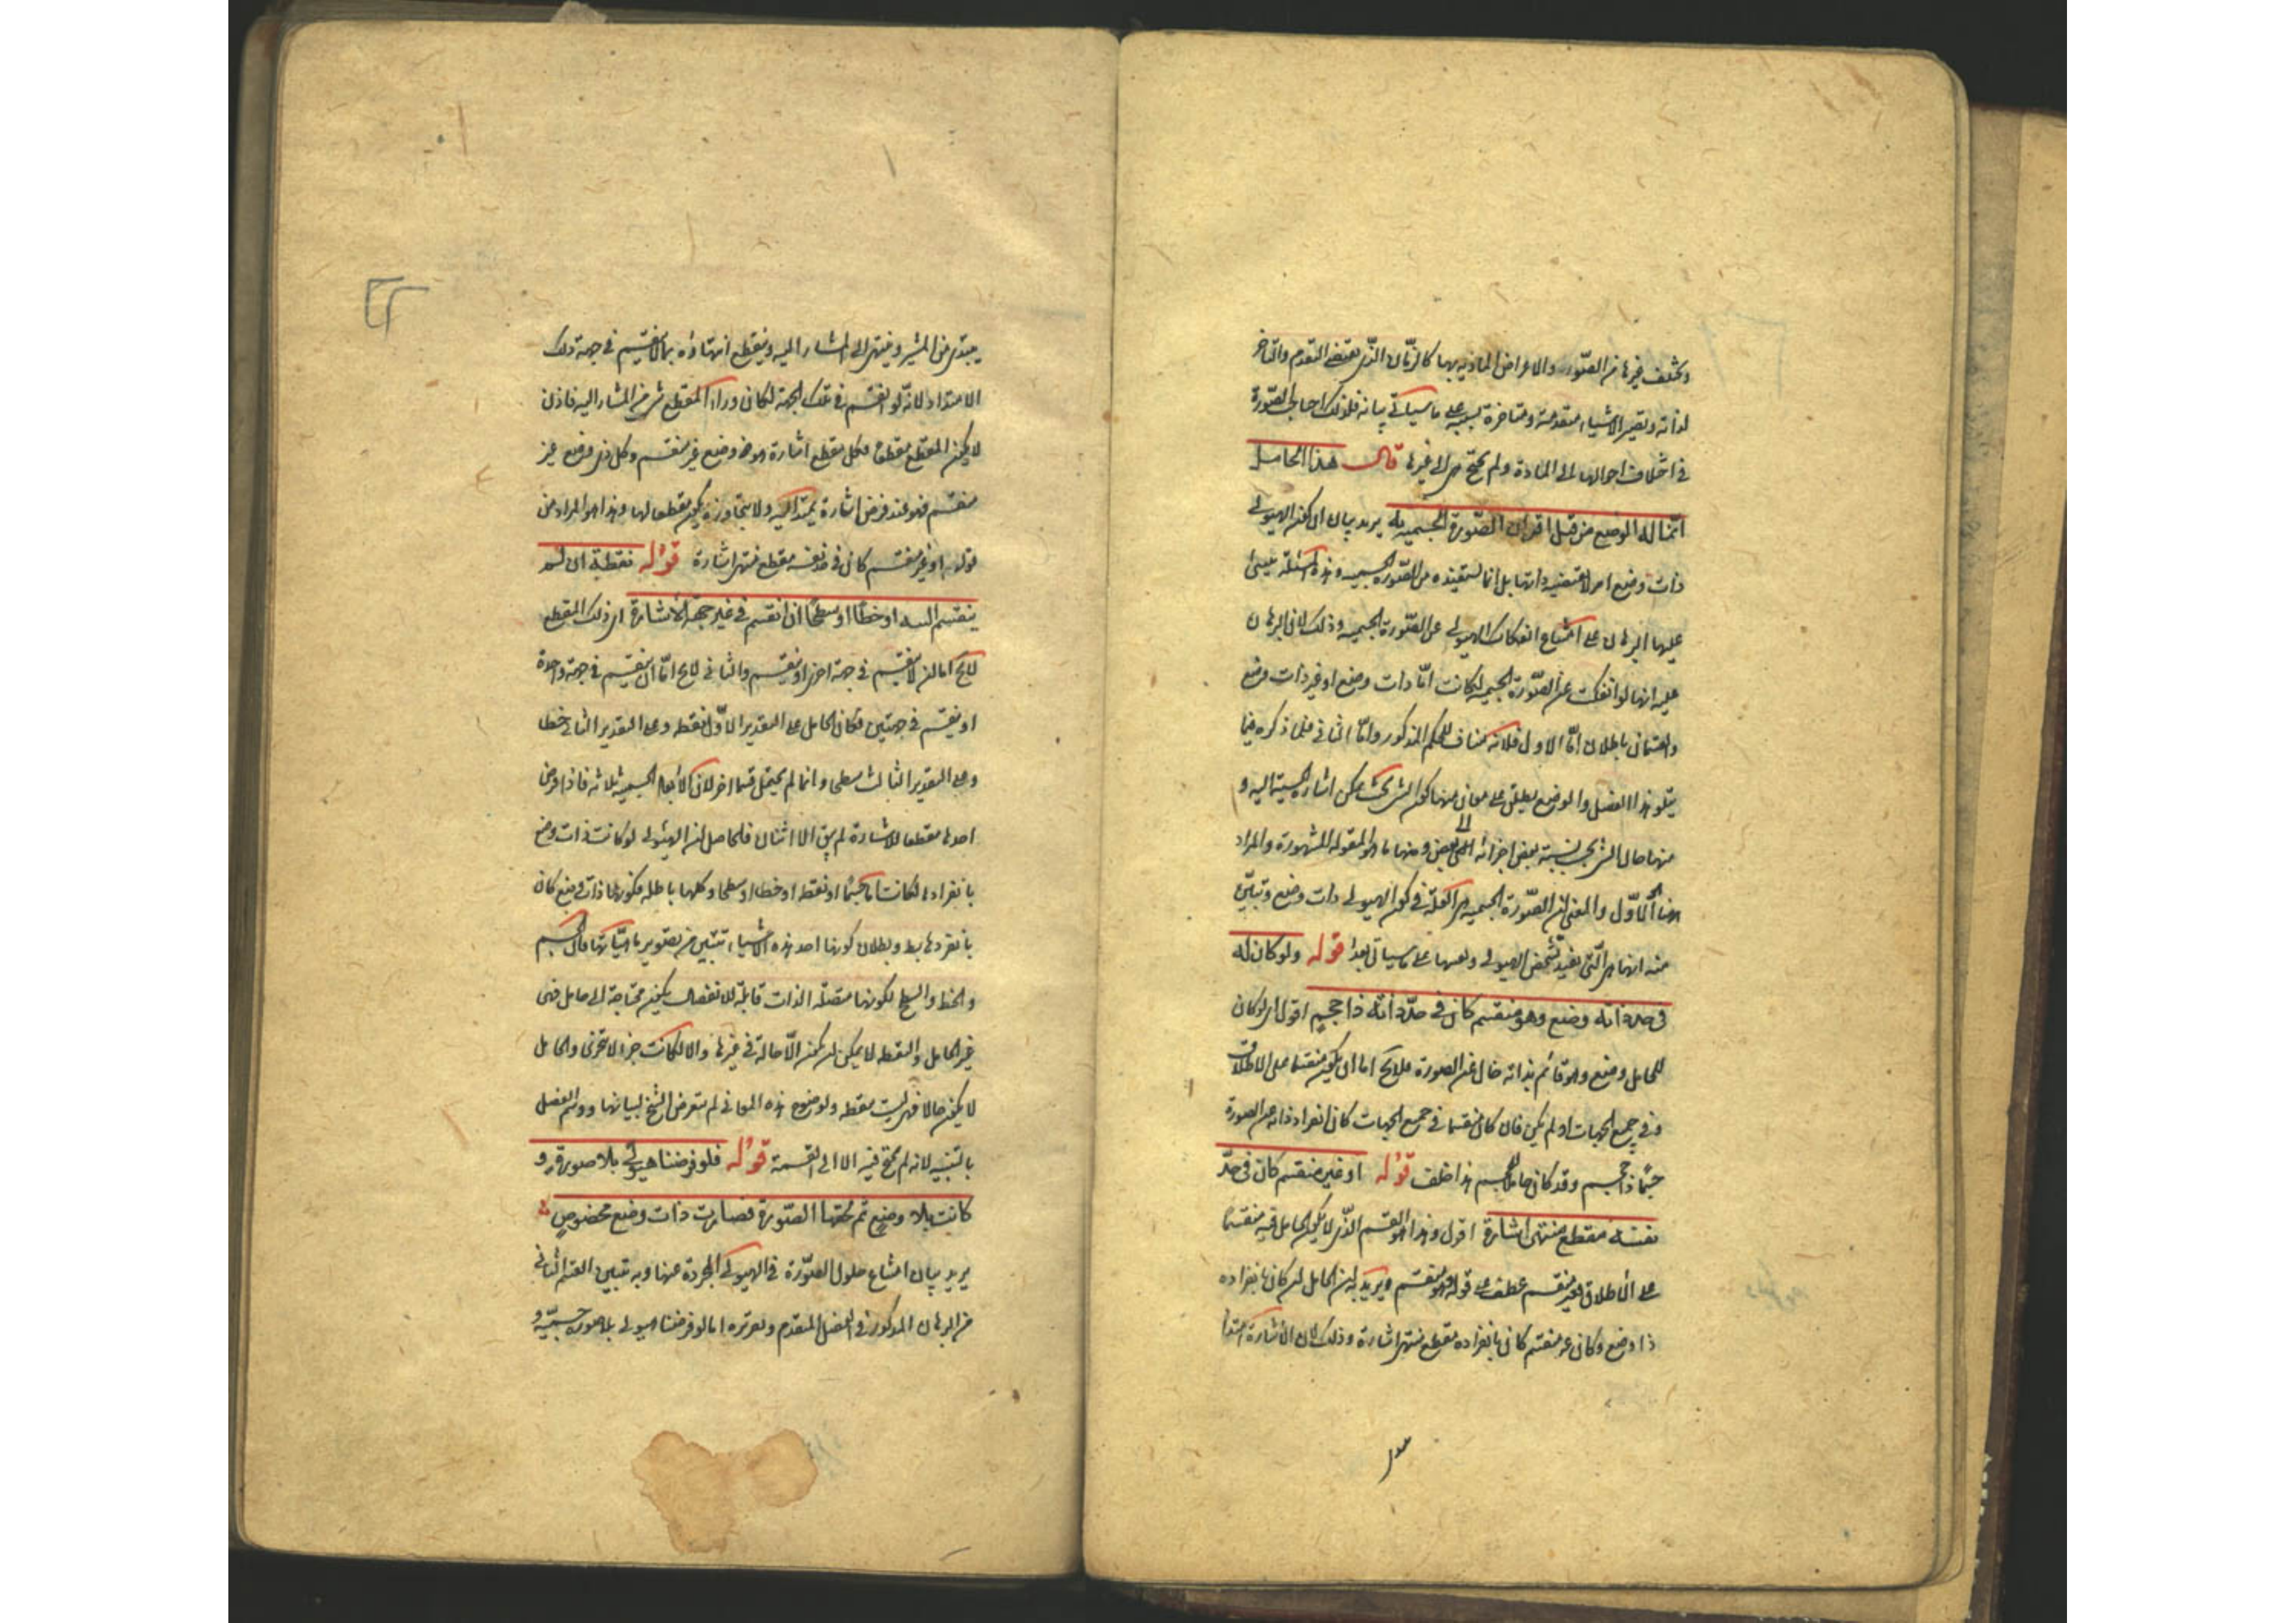 ويختلف غيرها من الصّور والاعراض الماديه بها كالزّمان الذّى يقتضى التقدم والتاخر
لذاته وتصير الاشياء متقدمة ومتاخرة بسببه على ما سياتى بيانه فلذلك احتاج الصّورة
فى اختلاف احوالها الى المادة ولم يحتج هى الى غيرها قال هذا الحامل
انما له الوضع من قبل اقتران الصّورة الجسميه به يريد بيان ان كون الهيولى
ذات وضع امر لا تقتضيه ذاتها بل انما تستفيده من الصّورة الجسميه وهذه المسئلة يبتنى
عليها البرهان على امتناع انفكاك الهيولى عن الصّورة الجسميه وذلك لان البرهان
عليه انها لو انفكت عن الصّورة الجسميه لكانت امّا ذات وضع او غير ذات وضع
والقسمان باطلان امّا الاول فلانه مناف للحكم المذكور وامّا الثانى فلما ذكره فيما
يتلو هذا الفصل والوضع يطلق على معان منها كون الشى بحيث يمكن اشارة حسية اليه و
منها حال الشى بحسب نسبة بعض اجزائه الى بعض ومنها ما هو المقولة المشهورة والمراد
هنا الاوّل والمعنى ان الصّورة الجسميه هى العلّة فى كون الهيولى ذات وضع وتبيّن
منه انها هى التى تفيد تشخص الهيولى وتعينها على ما سياتى بعد قوله ولو كان له
فى حدّ ذاته وضع وهو منقسم كان فى حدّ ذاته ذا حجم اقول اى لو كان
للحامل وضع وهو قائم بذاته خال عن الصورة فلا يخ اما ان يكون منقسما على الاطلاق
وفى جميع الجهات او لم يكن فان كان منقسما فى جميع الجهات كان انفراد ذاته عن الصورة
جسمًا ذا حجم وقد كان حامل الجسم هذا خلف قوله او غير منقسم كان فى حدّ
نفسه مقطع منتهى اشارة اقول وهذا هو القسم الذّى لا يكون الحامل فيه منقسمًا
على الاطلاق فغير منقسم عطف على قوله وهو منقسم ويريد به ان الحامل ان كان بانفراده
ذا وضع وكان غير منقسم كان بانفراده مقطع منتهى اشارة وذلك لان الاشارة امتداد
يبتدى من المشير وينتهى الى المشار اليه وينقطع انتهاؤه بما لا ينقسم فى جهة ذلك
الامتداد لانّه لو انقسم فى تلك الجهة لكان وراء المقطع شى من المشار اليه فاذن
لا يكون المقطع مقطعا فكل مقطع اشارة هو ذو وضع غير منقسم وكل ذى وضع غير
منقسم فهو عند فرض اشارة يمتد اليه ولا يتجاوزه يكون مقطعا لها وهذا هو المراد من
قوله او غير منقسم كان فى حد نفسه مقطع منتهى اشارة قوله نقطة ان لم
ينقسم البته او خطًا او سطحًا ان انقسم فى غير جهة الاشارة اى ذلك المقطع
لا يخ اما ان لا ينقسم فى جهة اخرى او ينقسم والثانى لا يخ امّا ان ينقسم فى جهة واحدة
او ينقسم فى جهتين فكان الحامل على التقدير الاوّل نقطه وعلى التقدير الثانى خطا
وعلى التقدير الثالث سطحا وانما لم يحتمل قسما اخر لان الابعاد الجسميه ثلاثه فاذا فرض
احدها مقطعا للاشارة لم يبق الا اثنان فالحاصل ان الهيولى لو كانت ذات وضع
بانفرادها لكانت اما جسمًا او نقطه او خطا او سطحا وكلها باطله فكونها ذات وضع كان
بانفردها بط وبطلان كونها احد هذه الاشياء تتبين من تصوير ماهيّاتها فان الجسم
والخط والسطح لكونها متصلة الذات قابلة للانفصال يكون محتاجة الى حامل فهى
غير الحامل والنقطه لا يمكن ان تكون الا حالة فى غيرها والا لكانت جزءا لا يتجزى والحامل
لا يكون حالا فهى ليست بنقطه ولوضوح هذه المعانى لم يتعرض الشيخ لبيانها ووسم الفصل
بالتنبيه لانه لم يحتج فيه الا الى القسمة قوله فلو فرضنا هيولى بلا صورة و
كانت بلا وضع ثم لحقتها الصّورة فصارت ذات وضع مخصوص
يريد بيان امتناع حلول الصّورة فى الهيولى المجردة عنها وبه تبين القسم الثانى
من البرهان المذكور فى الفصل المتقدم وتقريره انا لو فرضنا هيولى بلا صورة جسميّه و